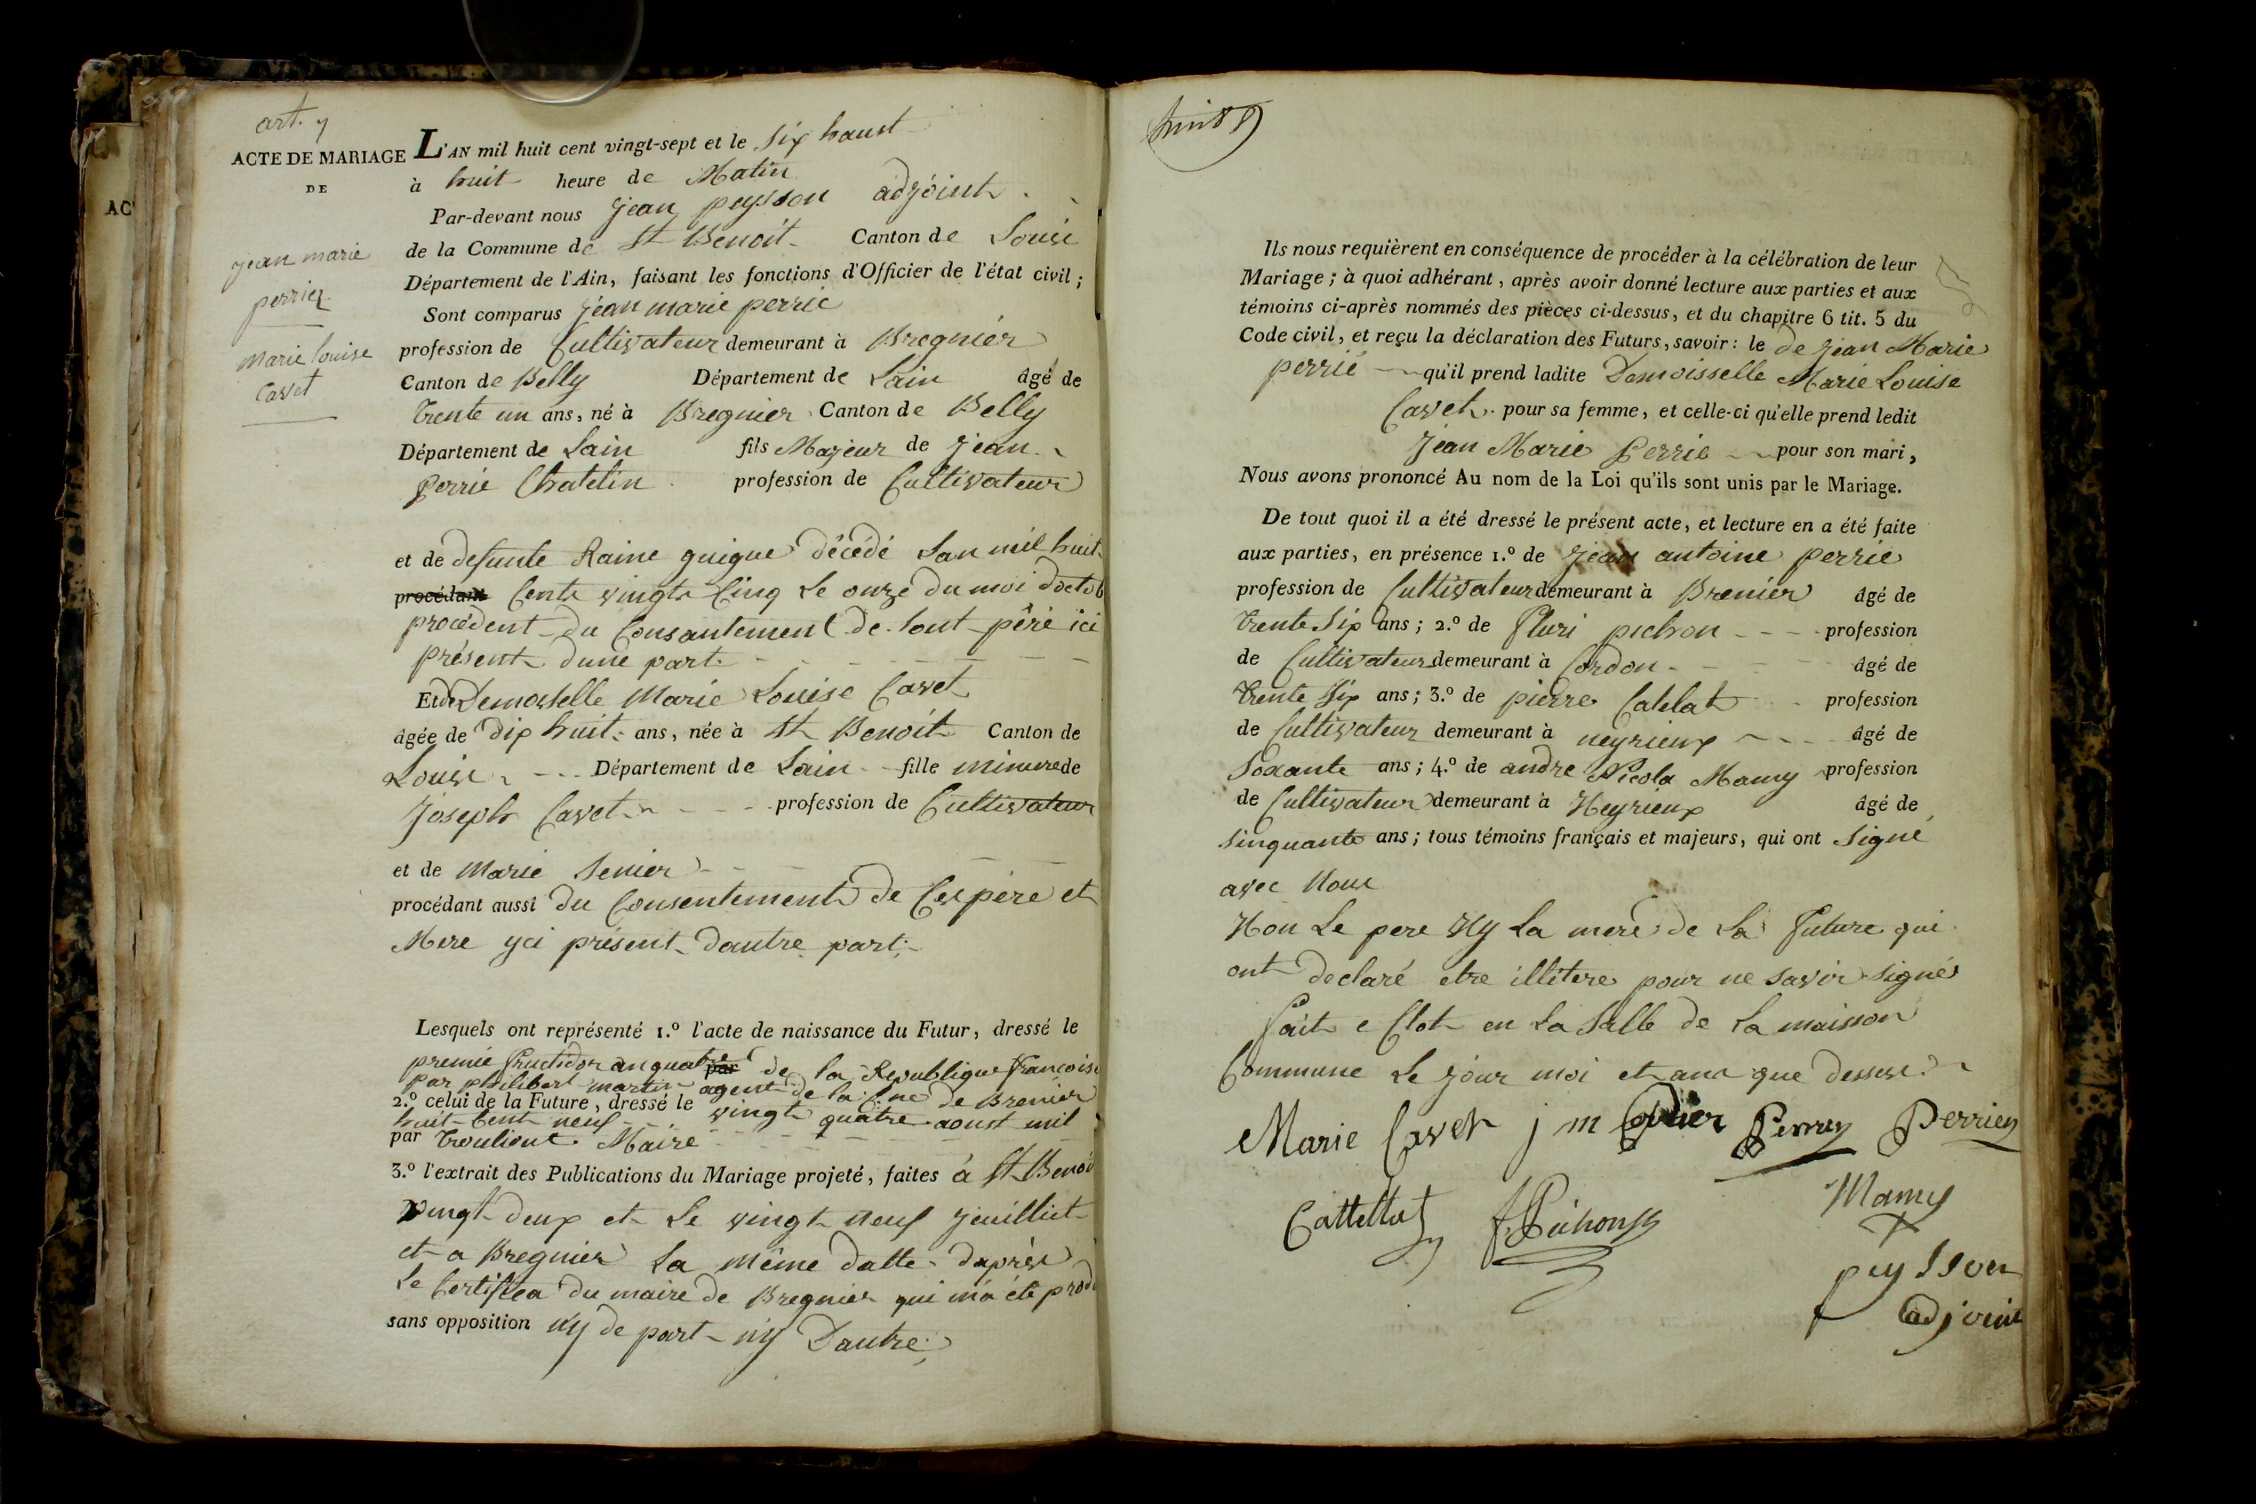 art. 7
ACTE DE MARIAGE
DE
jean marie
perrier
marie louise
Cavet
AC
L'AN mil huit cent vingt-sept et le Six haust
à huit heure de Matin
Par-devant nous jean peysson adjoint
de la Commune de St Benoit Canton de Louis
Département de l'Ain, faisant les fonctions d'Officier de l'état civil;
Sont comparus jean marie perrie
profession de Cultivateur demeurant à Bregnier
Canton de Belly Département de Lain âgé de
trente un ans, né à Bregnier Canton de Belly
Département de Lain fils Majeur de jean
perrie Chatelin profession de Cultivateur
et de defunte Raine guigue décédé Lan mil huit
procédant Cent vingt Cinq Le onze du moi doctob
procedent du Consantement de Sont père ici
présent dune part.
Et de Demoiselle Marie Louise Cavet
âgée de dix huit ans, née à St Benoit Canton de
Louis Département de Lain fille mineure de
joseph Cavet profession de Cultivateur
et de Marie Senier
procédant aussi du Consentement de Ces père et
Mere yci présent dautre part.
Lesquels ont représenté 1.º l'acte de naissance du Futur, dressé le
premie fructidor an quatre par de la Republique francoise
par philibert martin agent de la Cne de Brenier
2.º celui de la Future, dressé le vingt quatre aoust mil
huit Cent neuf
par trouliont Maire
3.º l'extrait des Publications du Mariage projeté, faites à St Benoi
vingt deux et Le vingt neuf jeuilliet
et a Bregnier La même datte daprès
Le Certifica du maire de Bregnier qui m'a été prod
sans opposition n'y de part n'y Dautre
huit
Ils nous requièrent en conséquence de procéder à la célébration de leur
Mariage; à quoi adhérant, après avoir donné lecture aux parties et aux
témoins ci-après nommés des pièces ci-dessus, et du chapitre 6 tit. 5 du
Code civil, et reçu la déclaration des Futurs, savoir: le de jean Marie
perrié qu'il prend ladite Demoisselle Marie Louise
Cavet pour sa femme, et celle-ci qu'elle prend ledit
jean Marie Perrie pour son mari,
Nous avons prononcé Au nom de la Loi qu'ils sont unis par le Mariage.
De tout quoi il a été dressé le présent acte, et lecture en a été faite
aux parties, en présence 1.º de jean antoine perrie
profession de Cultivateur demeurant à Brenier âgé de
trente Six ans; 2.º de fluri pichon profession
de Cultivateur demeurant à Cordon âgé de
trente Six ans; 3.º de pierre Catelat profession
de Cultivateur demeurant à neyrieux âgé de
Soxante ans; 4.º de andre Nicola Mamy profession
de Cultivateur demeurant à Neyrieux âgé de
sinquante ans; tous témoins français et majeurs, qui ont Signé
avec Nous
Non Le pere Ny La mere de La future qui
ont declaré etre illitere pour ne savoir signés
fait e Clot en La Salle de La maisson
Commune Le jour moi et ans que dessus
Marie Cavet j m Perrier Perrier
Cattellat f Pichon Mamy
peysson
adjoint